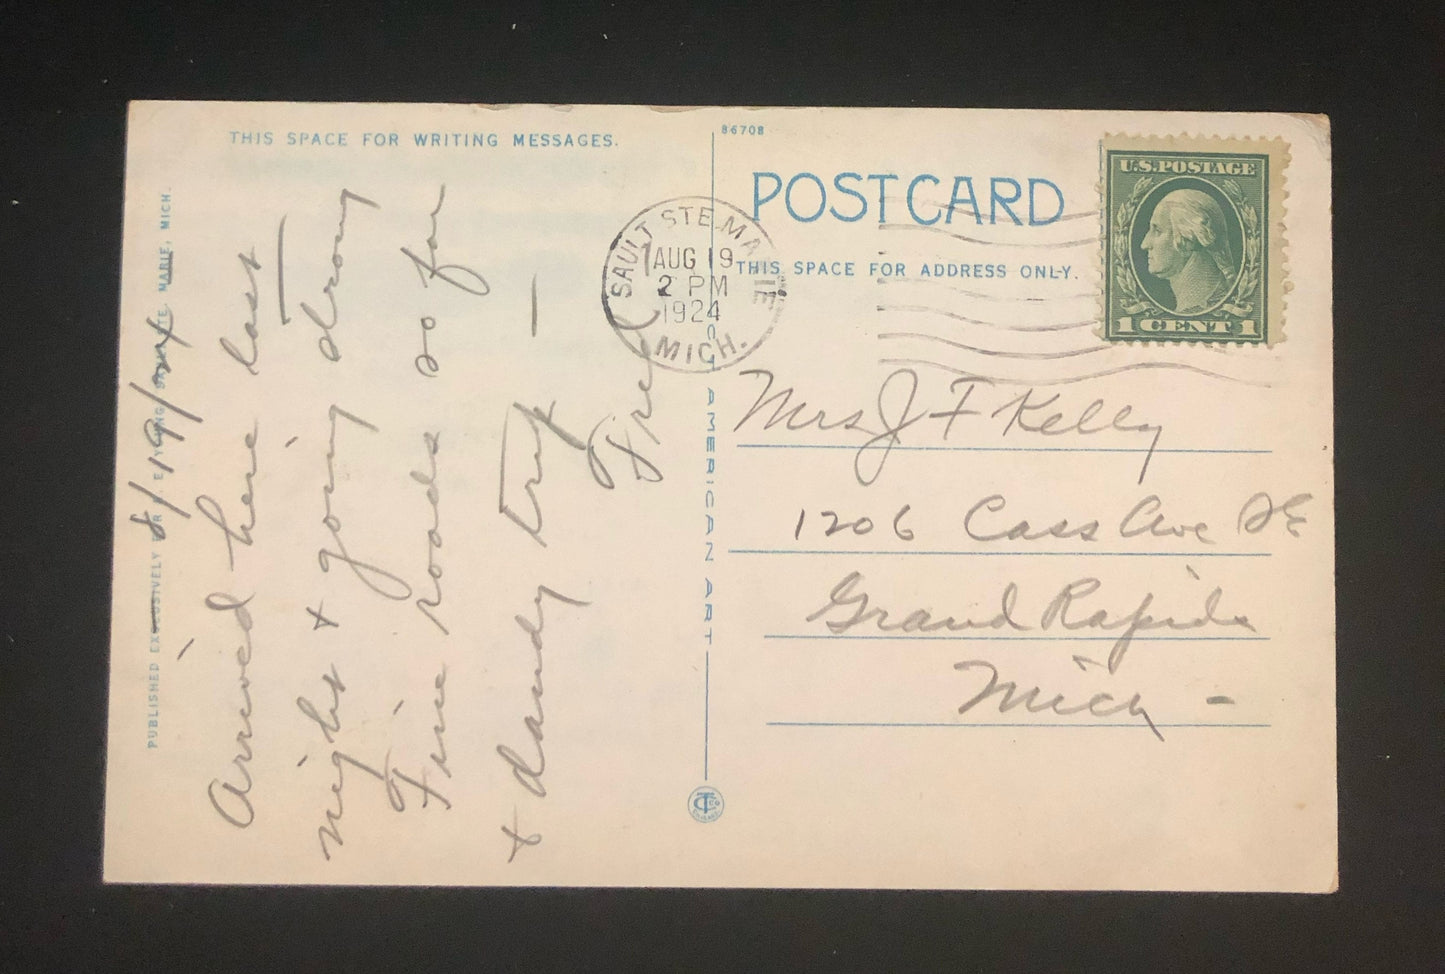 THIS SPACE FOR WRITING MESSAGES.
86708
POSTCARD
THIS SPACE FOR ADDRESS ONLY.
U.S. POSTAGE
1 CENT 1
SAULT STE. MARIE
AUG 19
2 PM
1924
MICH.
8/19/24
Arrived here last
night + going strong
Fine roads so far
+ dandy trip —
Fred
Mrs J F Kelly
1206 Cass Ave SE
Grand Rapids
Mich -
AMERICAN ART
PUBLISHED EXCLUSIVELY FOR STE. MARIE, MICH.